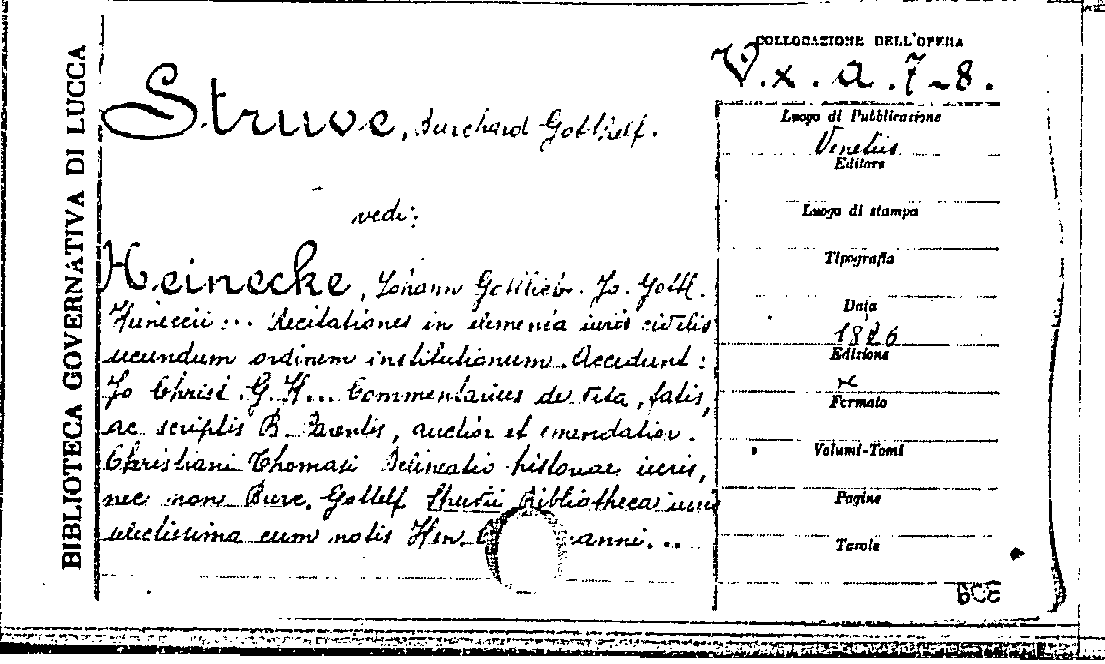 BIBLIOTECA GOVERNATIVA DI LUCCA
COLLOCAZIONE DELL'OPERA
V. x. a. 7-8.
Struve, Burchard Gotthelf.
vedi:
Heinecke, Johann Gottlieb. Jo. Gottl.
Heineccii... Recitationes in elementa iuris civilis
secundum ordinem institutionum. Accedunt:
Jo Christ. G. H... Commentarius de vita, fatis,
ac scriptis B. Parentis, auctior et emendatior.
Christiani Thomasi Delineatio historiae iuris,
nec non Burc. Gottelf Struvii Bibliotheca iuris
selectissima cum notis Hen.
anni...
Luogo di Pubblicazione
Venetiis
Editore
Luogo di stampa
Tipografia
Data
1826
Edizione
Formato
Volumi-Tomi
Pagine
Tavole